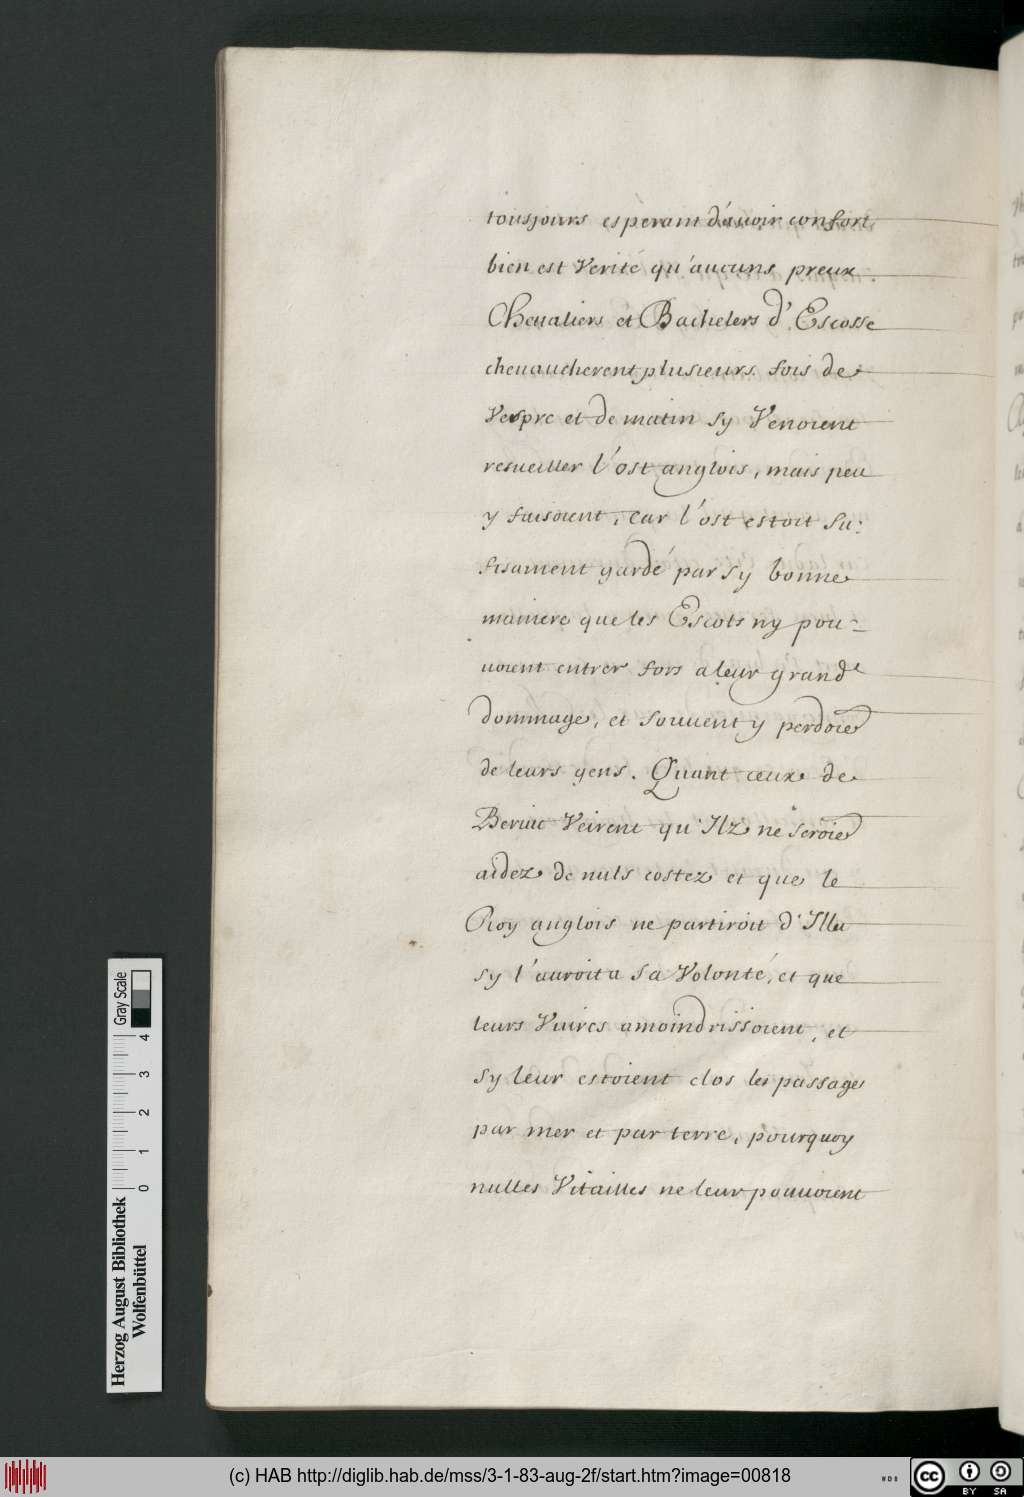 tousjours esperant d'auoir confort,
bien est Verité qu'aucuns preux
Cheualiers et Bachelers d'Escosse
cheuaucherent plusieurs fois de
Vespre et de matin sy Venoient
resueiller l'ost anglois, mais peu
y faisoient, car l'ost estoit su:
fisament gardé par sy bonne
maniere que les Escots ny pou=
uoient entrer fors a leur grand
dommage, et souuent y perdoie
de leurs gens. Quant ceux de
Beruic Veirent qu'Ilz ne seroie
aidez de nuls costez et que le
Roy anglois ne partiroit d'Illa
sy l'auroit a sa Volonté, et que
leurs Viures amoindrissoient, et
sy leur estoient clos les passages
par mer et par terre, pourquoy
nulles Vitailles ne leur pouuoient
Gray Scale
4
3
2
1
0
Herzog August Bibliothek
Wolfenbüttel
(c) HAB http://diglib.hab.de/mss/3-1-83-aug-2f/start.htm?image=00818
WDB
cc
BY SA